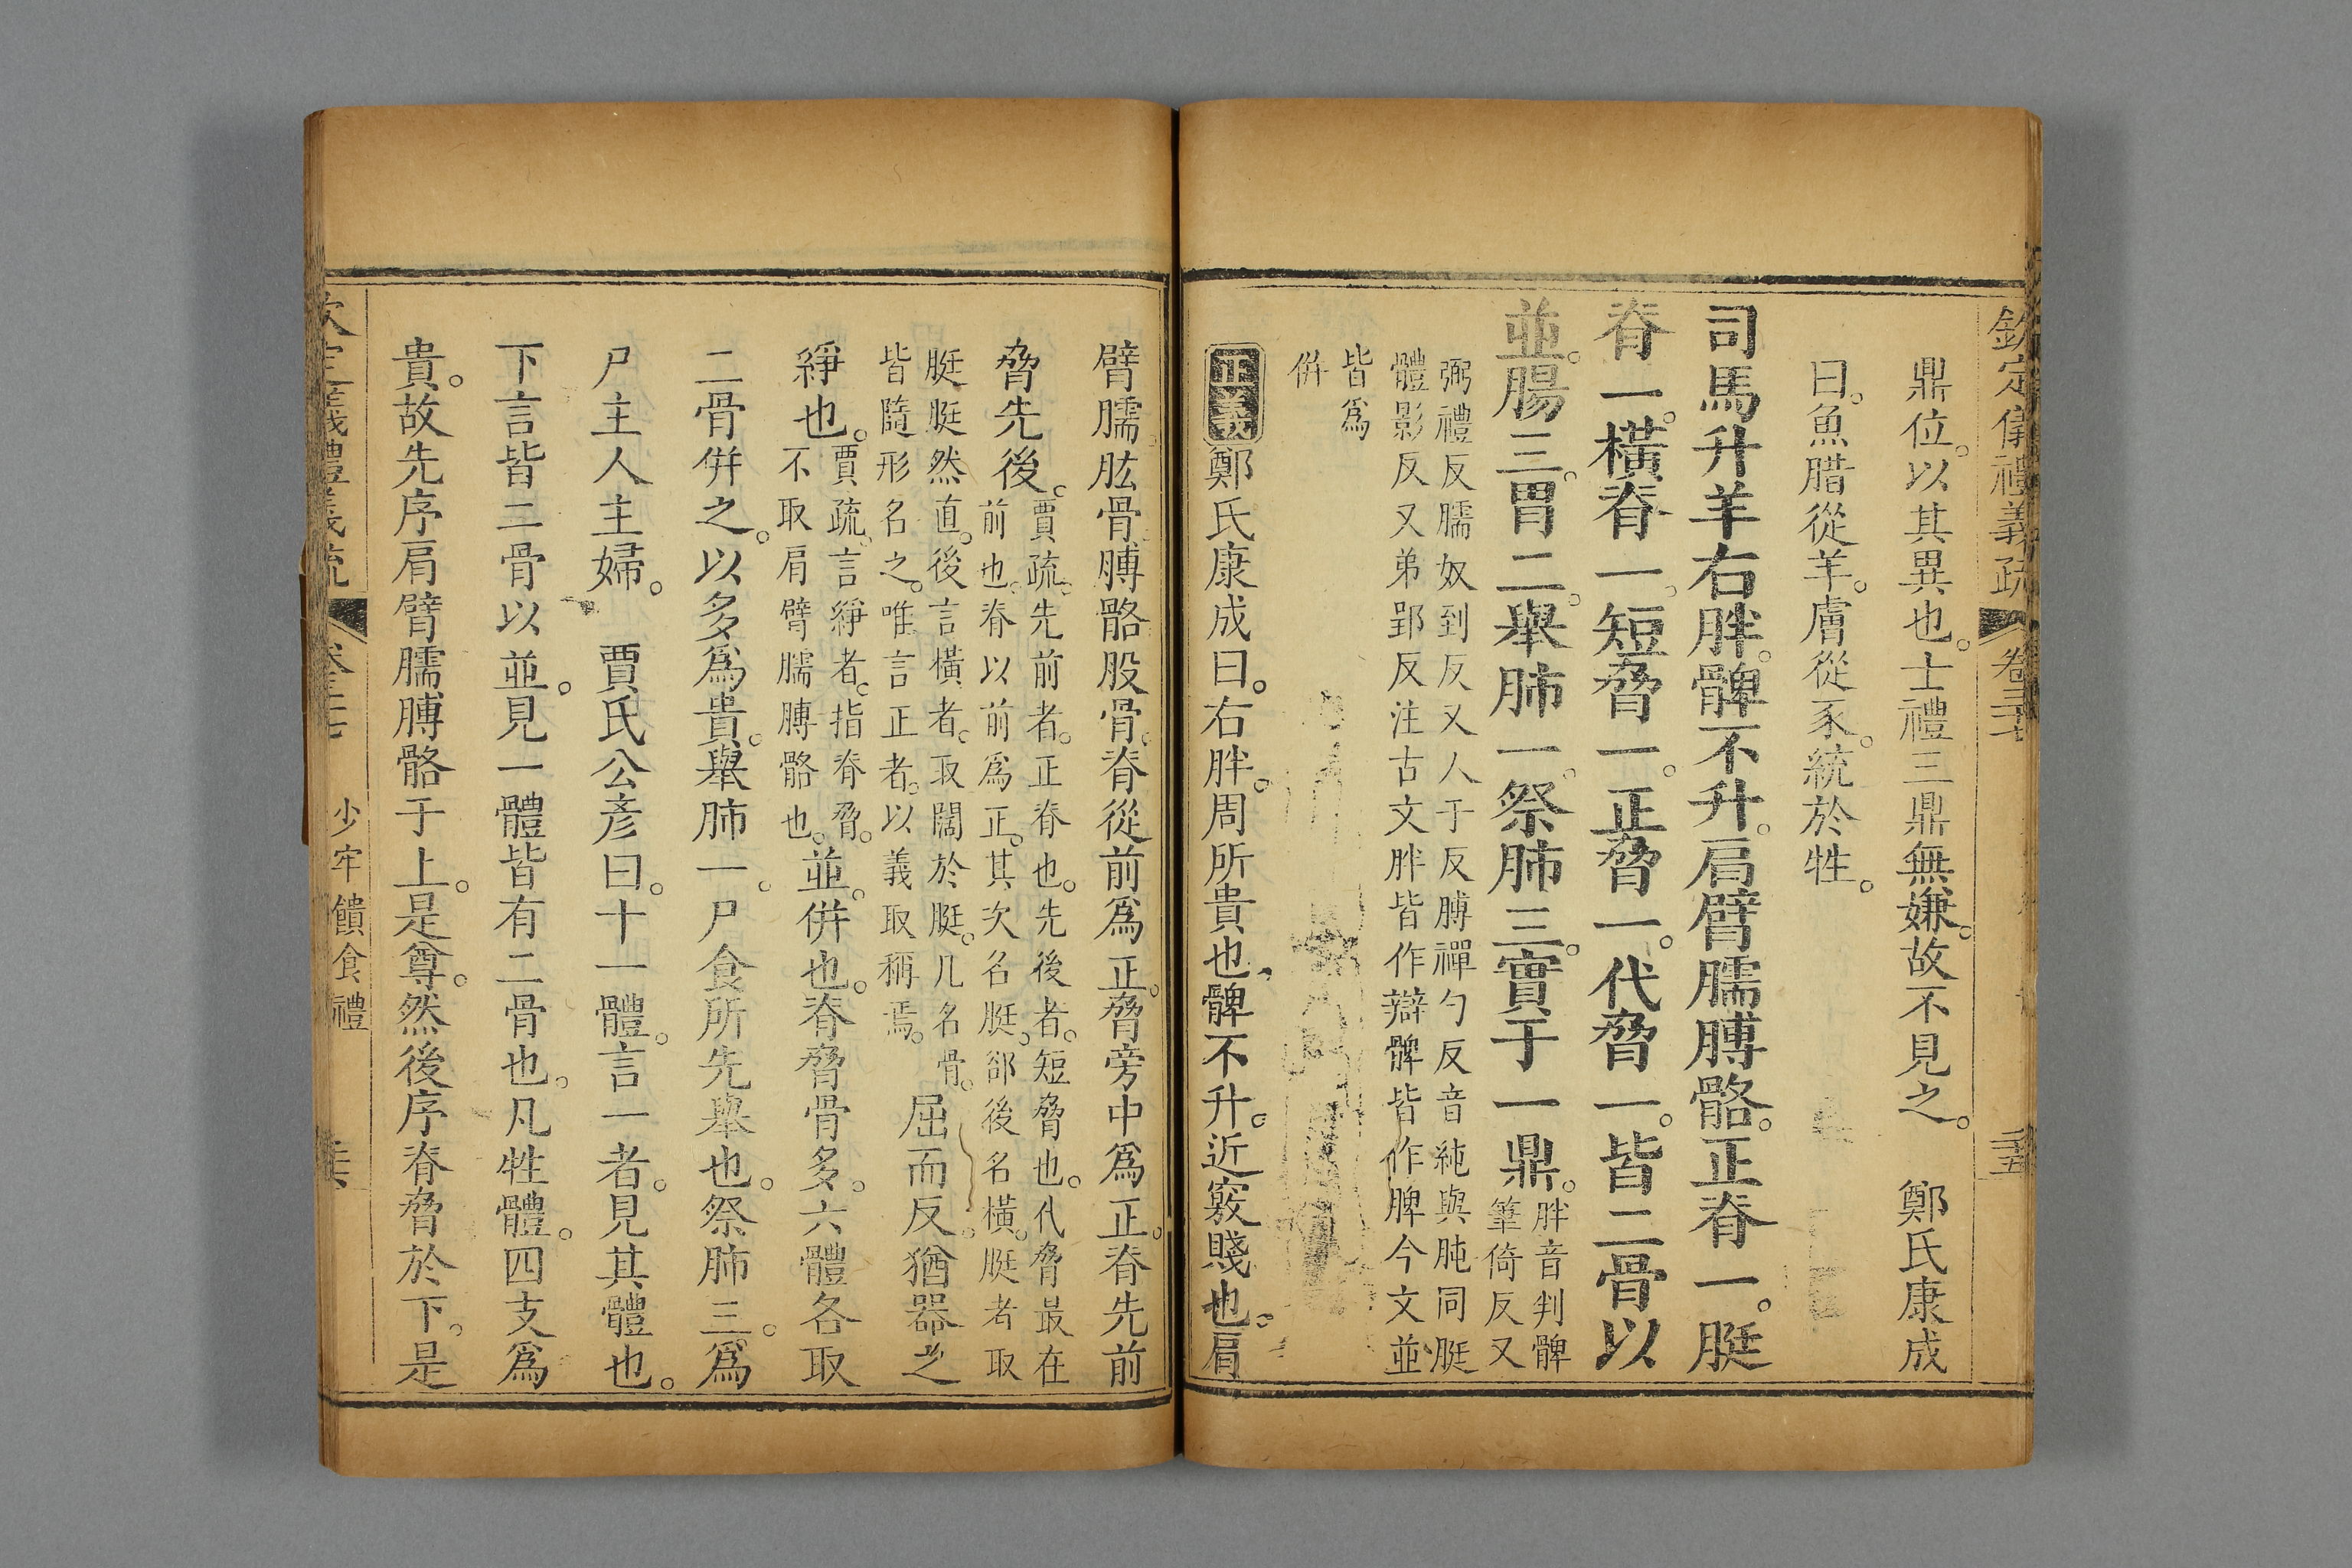 欽定儀禮義疏 卷三十七 三五
鼎位。以其異也。士禮三鼎無嫌。故不見之。 鄭氏康成
曰。魚腊從羊。膚從豕。統於牲。
司馬升羊右胖。髀不升。肩臂臑膊骼。正脊一。脡
脊一。橫脊一。短脅一。正脅一。代脅一。皆二骨以
並。腸三。胃二。舉肺一。祭肺三。實于一鼎。胖音判髀
筆倚反又
弼禮反臑奴到反又人于反膊禪勺反音純與肫同脡
體影反又弟郢反注古文胖皆作辯髀皆作脾今文並
皆爲
併
正義 鄭氏康成曰。右胖。周所貴也。髀不升。近竅賤也。肩
臂臑肱骨。膊骼股骨。脊從前爲正。脅旁中爲正。脊先前
脅先後。賈疏。先前者。正脊也。先後者。短脅也。代脅最在
前也。脊以前爲正。其次名脡。郤後名橫。脡者取
脡脡然直。後言橫者。取闊於脡。凡名骨。
皆隨形名之。唯言正者。以義取稱焉。
屈而反。猶器之
綪也。賈疏。言綪者。指脊脅。
不取肩臂臑膊骼也。
並。併也。脊脅骨多。六體各取
二骨併之。以多爲貴。舉肺一。尸食所先舉也。祭肺三。爲
尸主人主婦。 賈氏公彦曰。十一體。言一者。見其體也。
下言皆二骨以並。見一體皆有二骨也。凡牲體。四支爲
貴。故先序肩臂臑膊骼于上。是尊。然後序脊脅於下。是
少牢饋食禮